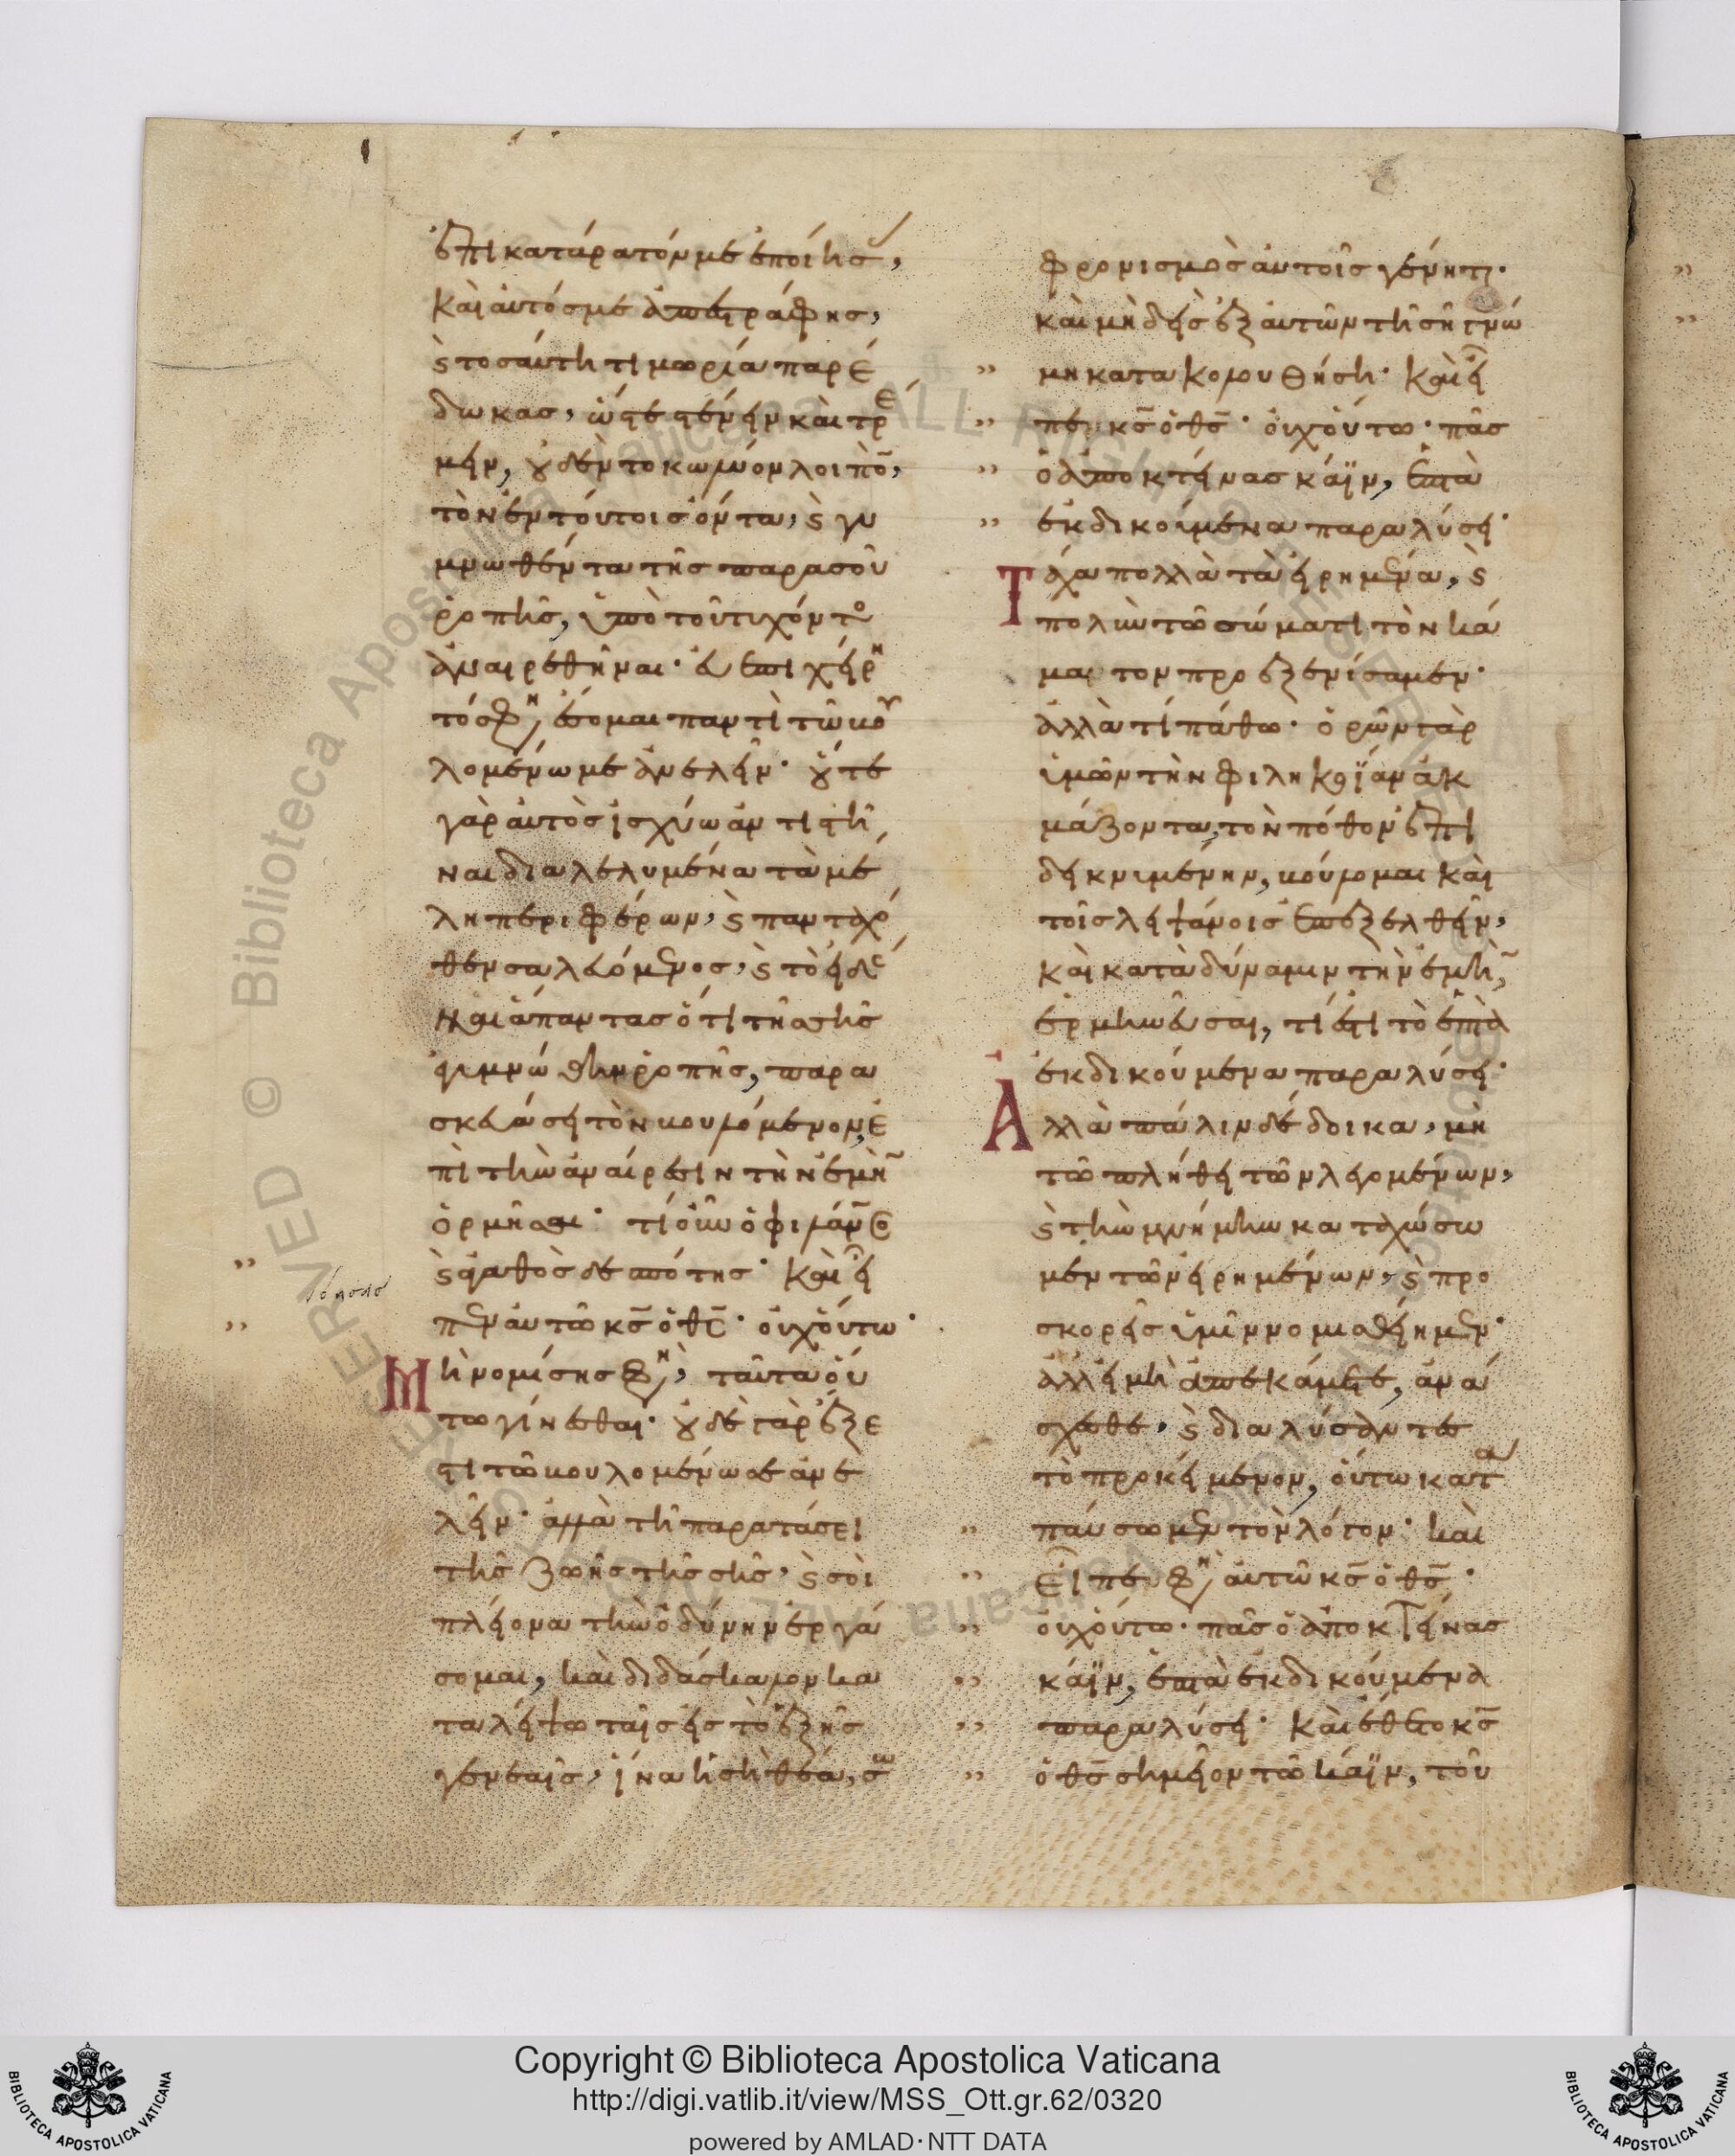 ἐπικατάρατόν με ἐποίησ,
καὶ αὐτόσ με ἀπεγράφησ,
ϛ τοσαύτη τιμωρία παρέ
δωκασ, ὥστε στένειν καὶ τρέ
μειν, οὐδὲν τὸ κωλύον λοιπὸν,
τὸν ἐν τούτοισ ὄντα, ϛ γυ
μνωθέντα τῆσ παρὰ σοῦ
ῥοπῆσ, ὑπὸ τοῦ τυχόντοσ
ἀναιρεθῆναι· εὐεπιχείρη
τοσ φησὶν ἔσομαι παντὶ τῶ βου
λομένω με ἀνελεῖν· οὔτε
γὰρ αὐτὸσ ἰσχύω ἀντιστῆ
ναι διαλελυμένα τὰ μέ
λη περιφέρων, ϛ πανταχό
θεν σαλευόμενοσ, ϛ τὸ εἰδέ
ναι ἅπαντασ ὅτι τῆσ σῆσ
γυμνώθην ῥοπῆσ, παρα
σκευάσει τὸν βουλόμενον ἐ
πὶ τὴν ἀναίρεσιν τὴν ἐμὴν
ὁρμῆσαι· τί οὖν ὁ φιλάνθρωποσ
ϛ ἀγαθὸσ δεσπότησ· καὶ εἶ
πεν αὐτῶ κσ ὁ θσ· οὐχ οὕτω·
Μὴ νομίσησ φησὶ, ταῦτα οὕ
τω γίνεσθαι· οὐδὲ γὰρ ἔξε
στι τῶ βουλομένω σε ἀνε
λεῖν· ἀλλὰ τῆ παρατάσει
τῆσ ζωῆσ τῆσ σῆσ, ϛ σοὶ
πλείονα τὴν ὀδύνην ἐργά
σομαι, καὶ διδάσκαλον κα
ταλείψω ταῖσ εἰσ τὸ ἑξῆσ
γενεαῖσ, ἵνα ἡ σὴ θέα, σω
φρονισμὸσ αὐτοῖσ γένηται·
καὶ μηδεὶσ ἐξ αὐτῶν τῆ σῆ γνώ
μη κατακολουθήση· καὶ εἶ
πεν κσ ὁ θσ· οὐχ οὕτω· πᾶσ
ὁ ἀποκτείνασ κάϊν, ἑπτὰ
ἐκδικούμενα παραλύσει·
Τάχα πολλὰ τὰ εἰρημένα, ϛ
πολὺν τῶ σώματι τὸν κά
ματον προεξενίσαμεν·
ἀλλὰ τί πάθω· ὁρῶν γὰρ
ὑμῶν τὴν φιληκοΐαν ἀκ
μάζοντα, τὸν πόθον ἐπι
δεικνυμένην, βούλομαι καὶ
τοῖσ λειψάνοισ ἐπεξελθεῖν,
καὶ κατὰ δύναμιν τὴν ἐμὴν,
ἑρμηνεῦσαι, τί ἐστι τὸ ἑπτὰ
ἐκδικούμενα παραλύσει·
Ἀλλὰ πάλιν δέδοικα, μὴ
τῶ πλήθει τῶν λεγομένων,
ϛ τὴν μνήμην καταχώσω
μεν τῶν εἰρημένων, ϛ προ
σκορεῖσ ὑμῖν νομισθείημεν·
ἀλλ' εἰ μὴ ἀπεκάμετε, ἀνά
σχεσθε, ϛ διαλύσαντεσ
τὸ προκείμενον, οὕτω κατα
παύσωμεν τὸν λόγον· καὶ
εἶπεν φησὶν αὐτῶ κσ ὁ θσ·
οὐχ οὕτω· πᾶσ ὁ ἀποκτείνασ
κάϊν, ἑπτὰ ἐκδικούμενα
παραλύσει· καὶ ἔθετο κσ
ὁ θσ σημεῖον τῶ κάϊν, τοῦ
Copyright © Biblioteca Apostolica Vaticana
http://digi.vatlib.it/view/MSS_Ott.gr.62/0320
powered by AMLAD·NTT DATA
BIBLIOTECA APOSTOLICA VATICANA
BIBLIOTECA APOSTOLICA VATICANA